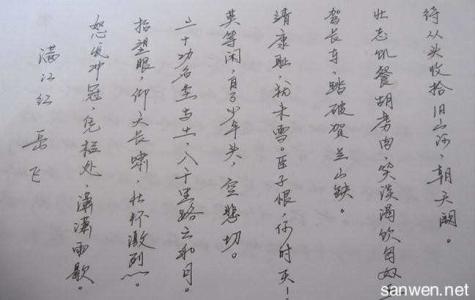 满江红 岳飞
怒发冲冠，凭栏处、潇潇雨歇。
抬望眼，仰天长啸，壮怀激烈。
三十功名尘与土，八千里路云和月。
莫等闲，白了少年头，空悲切。
靖康耻，犹未雪。臣子恨，何时灭！
驾长车，踏破贺兰山缺。
壮志饥餐胡虏肉，笑谈渴饮匈奴
待从头收拾旧山河，朝天阙。
sanwen.net